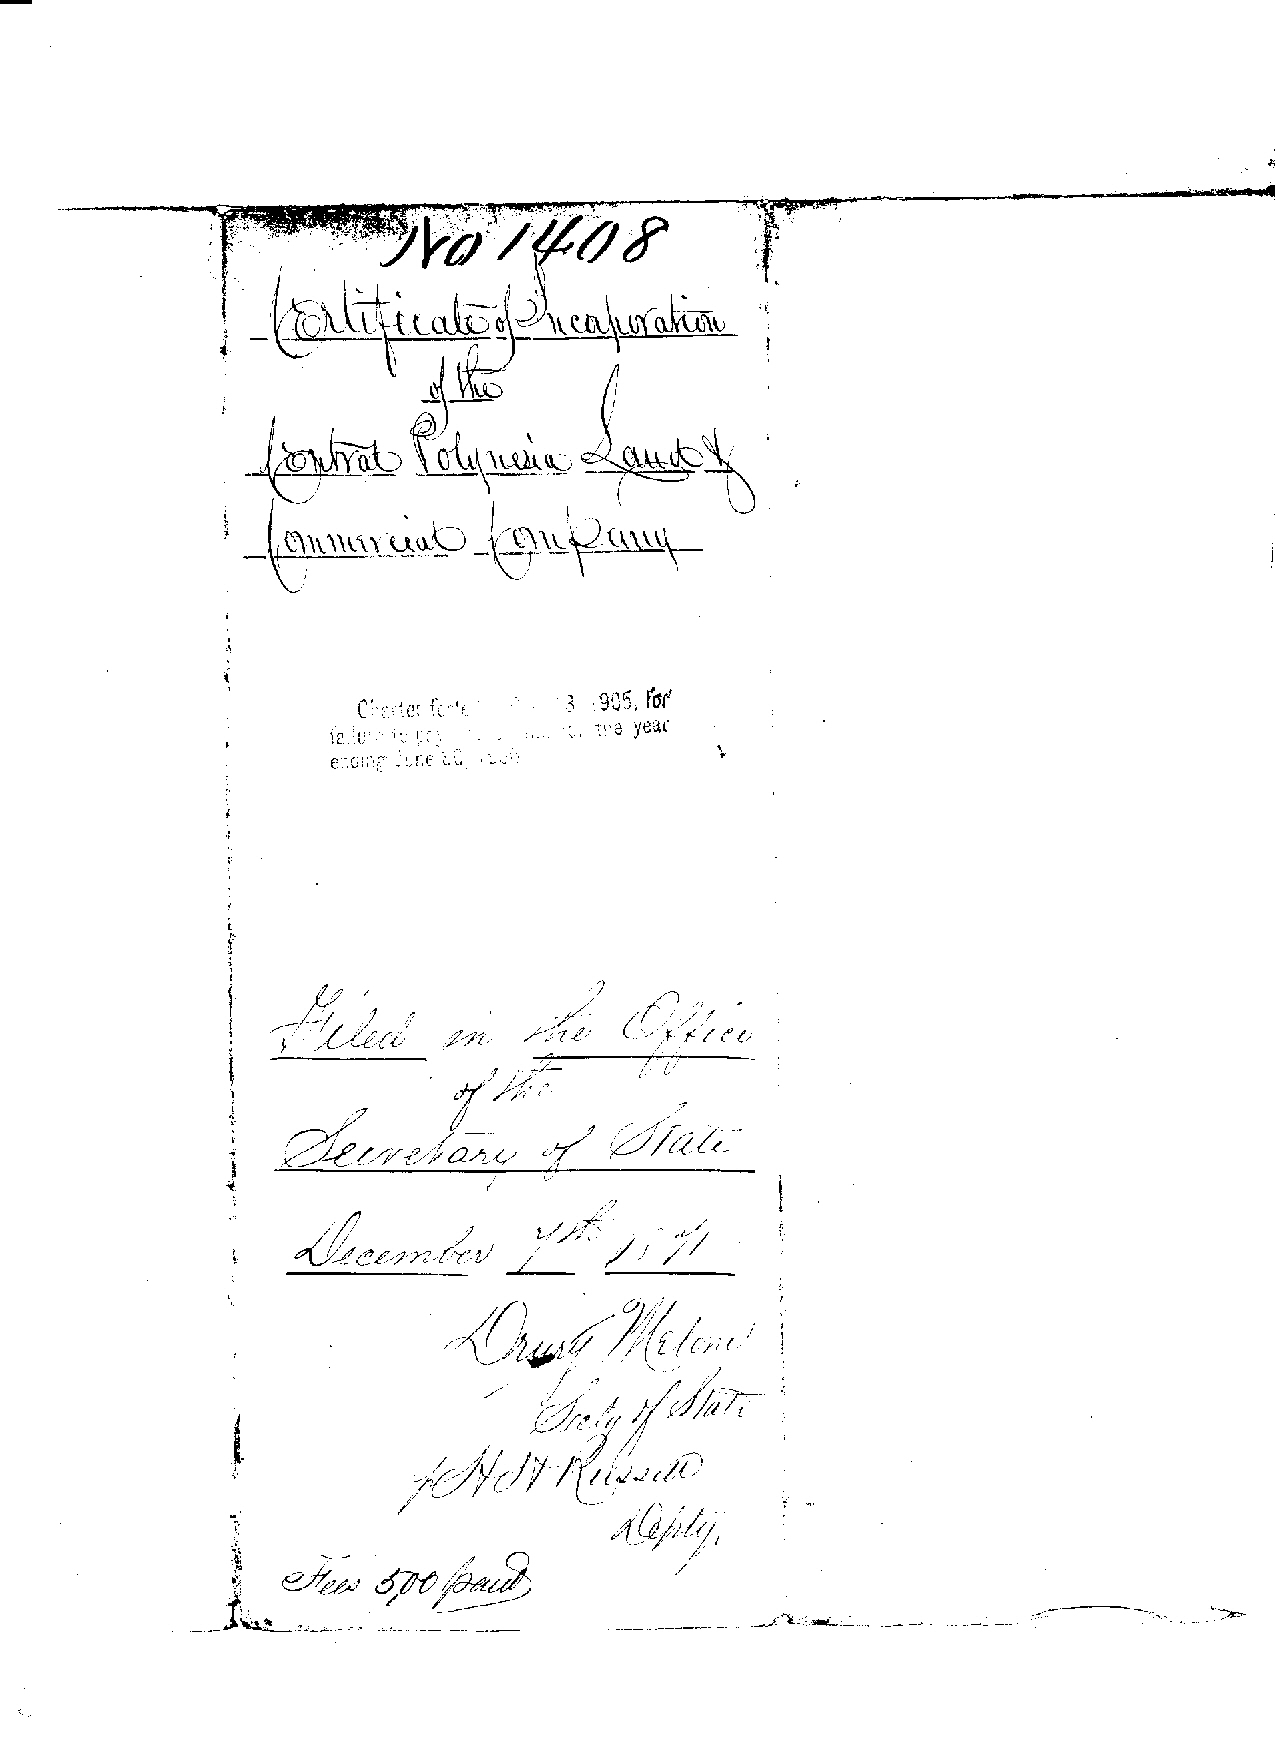 No 1408
Certificate of Incorporation
of the
Central Polynesia Land &
Commercial Company
Charter 1905, for
failure to pay the year
ending June
Filed in the Office
of the
Secretary of State
December 7th 1871
Drury Melone
Secty of State
Russell
Depty.
Fees 5,00 paid